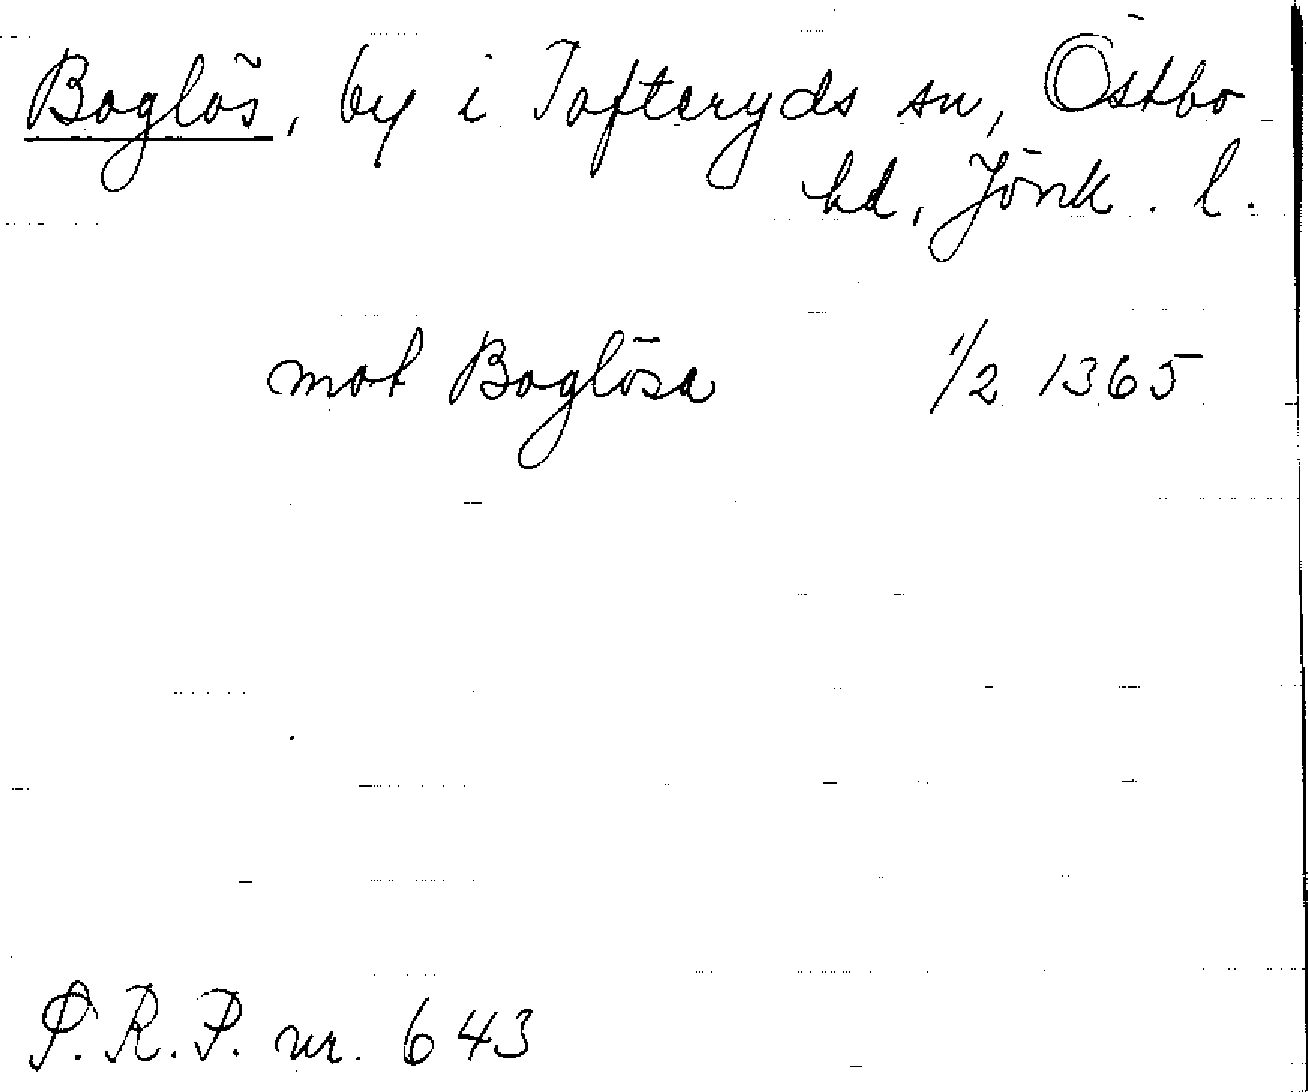 Boglös, by i Tofteryds sn, Östbo
hd, Jönk. l.
mot Boglösa 1/2 1365
P.R.P. nr. 643